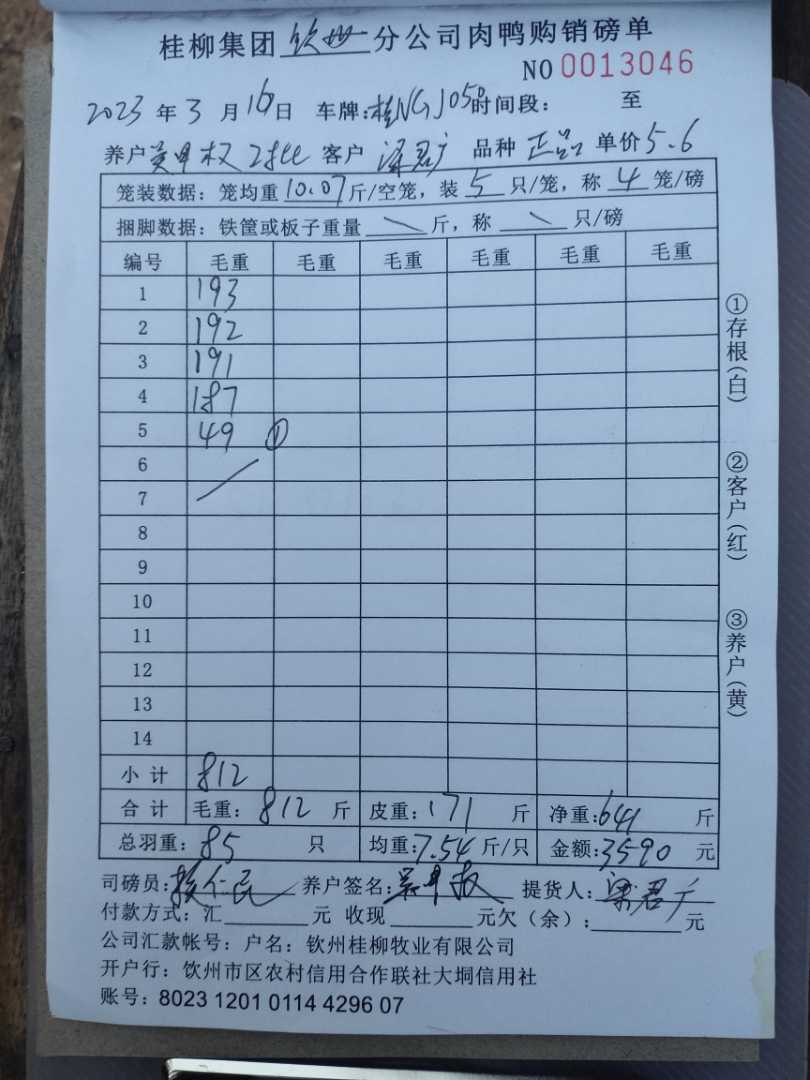 桂柳集团 钦州 分公司肉鸭购销磅单
NO 0013046
2023 年 3 月 16 日 车牌:桂NGJ050 时间段: 至
养户 吴甲权 2批 客户 梁君广 品种 正品 单价 5.6
笼装数据:笼均重 10.07 斤/空笼,装 5 只/笼,称 4 笼/磅
捆脚数据:铁筐或板子重量 \ 斤,称 \ 只/磅
编号 毛重 毛重 毛重 毛重 毛重 毛重
1 193
2 192
3 191
4 187
5 49 ①
6
7
8
9
10
11
12
13
14
小 计 812
合 计 毛重: 812 斤 皮重: 171 斤 净重: 641 斤
总羽重: 85 只 均重: 7.54 斤/只 金额: 3590 元
司磅员: 养户签名: 吴甲权 提货人: 梁君广
付款方式:汇 元 收现 元欠(余): 元
公司汇款帐号:户名:钦州桂柳牧业有限公司
开户行:钦州市区农村信用合作联社大垌信用社
账号:8023 1201 0114 4296 07
①存根(白)
②客户(红)
③养户(黄)